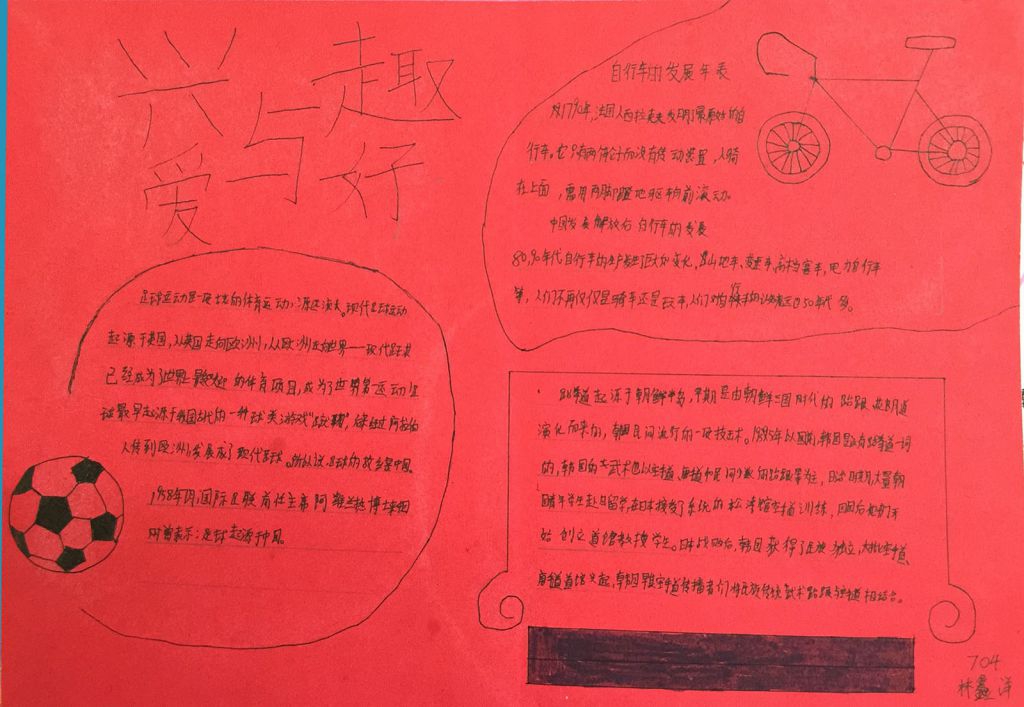 兴趣
与
爱好
自行车的发展年表
1790年,法国人西拉克发明了最原始的自
行车。它只有两个轮子而没有传动装置,人骑
在上面,需用两脚蹬地驱车向前滚动。
中国发展解放后自行车的发展
80,90年代自行车的生产发生了巨大的变化,山地车、变速车、电力自行车
等,人们不再仅仅是骑车还是玩车,人们对自行车的认识超过50年代
足球运动是一项古老的体育运动,源远流长。现代足球运动
起源于英国,从英国走向欧洲,从欧洲走向世界——现代足球
已经成为了世界的体育项目,成为了世界第一运动
最早起源于我国古代的一种球类游戏"蹴鞠",经过阿拉伯
人传到欧洲,发展成了现代足球。所以说足球的故乡是中国。
1958年7月,国际足联前任主席阿维兰热博士来中国
时曾表示:足球起源于中国。
跆拳道起源于朝鲜半岛,早期是由朝鲜三国时代的跆跟、花郎道
演化而来的,韩国民间流行的一项技击术。1955年以前韩国没有跆拳道一词
的,韩国的武术也以空手道、唐手道和民间的跆跟等为主,日占时期大量朝
国青年学生赴日留学,在日本接受了系统的松涛馆空手道训练,回国后他们开
始创立道馆教授学生。日本战败后,韩国获得了民族独立,大批空手道、
唐手道道馆兴起,韩国早期空手道传播者们将民族传统武术跆跟与空手道相结合。
704
林鑫洋